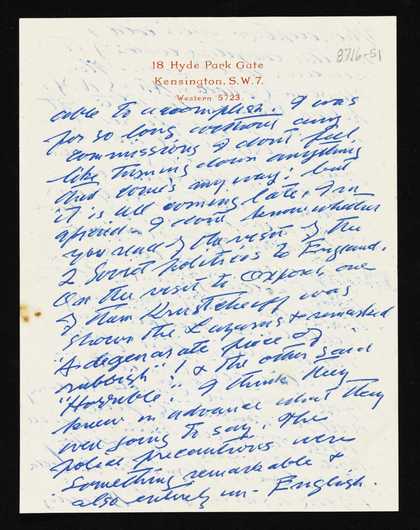 18 Hyde Park Gate
Kensington. S.W.7.
Western 5723.
8716-51
able to accomplish. I was
for so long without any
commissions I don't feel
like turning down anything
that come's my way; but
it is all coming late, I'm
afraid. I don't know whether
you read of the visit of the
2 Soviet politicos to England.
On the visit to Oxford, one
of them Krustcheff was
shown the Lazarus & remarked
"A degenarate piece of
rubbish"! & the other said
"Horrible". I think they
knew in advance what they
were going to say. The
police precautions were
something remarkable &
also entirely un-English.